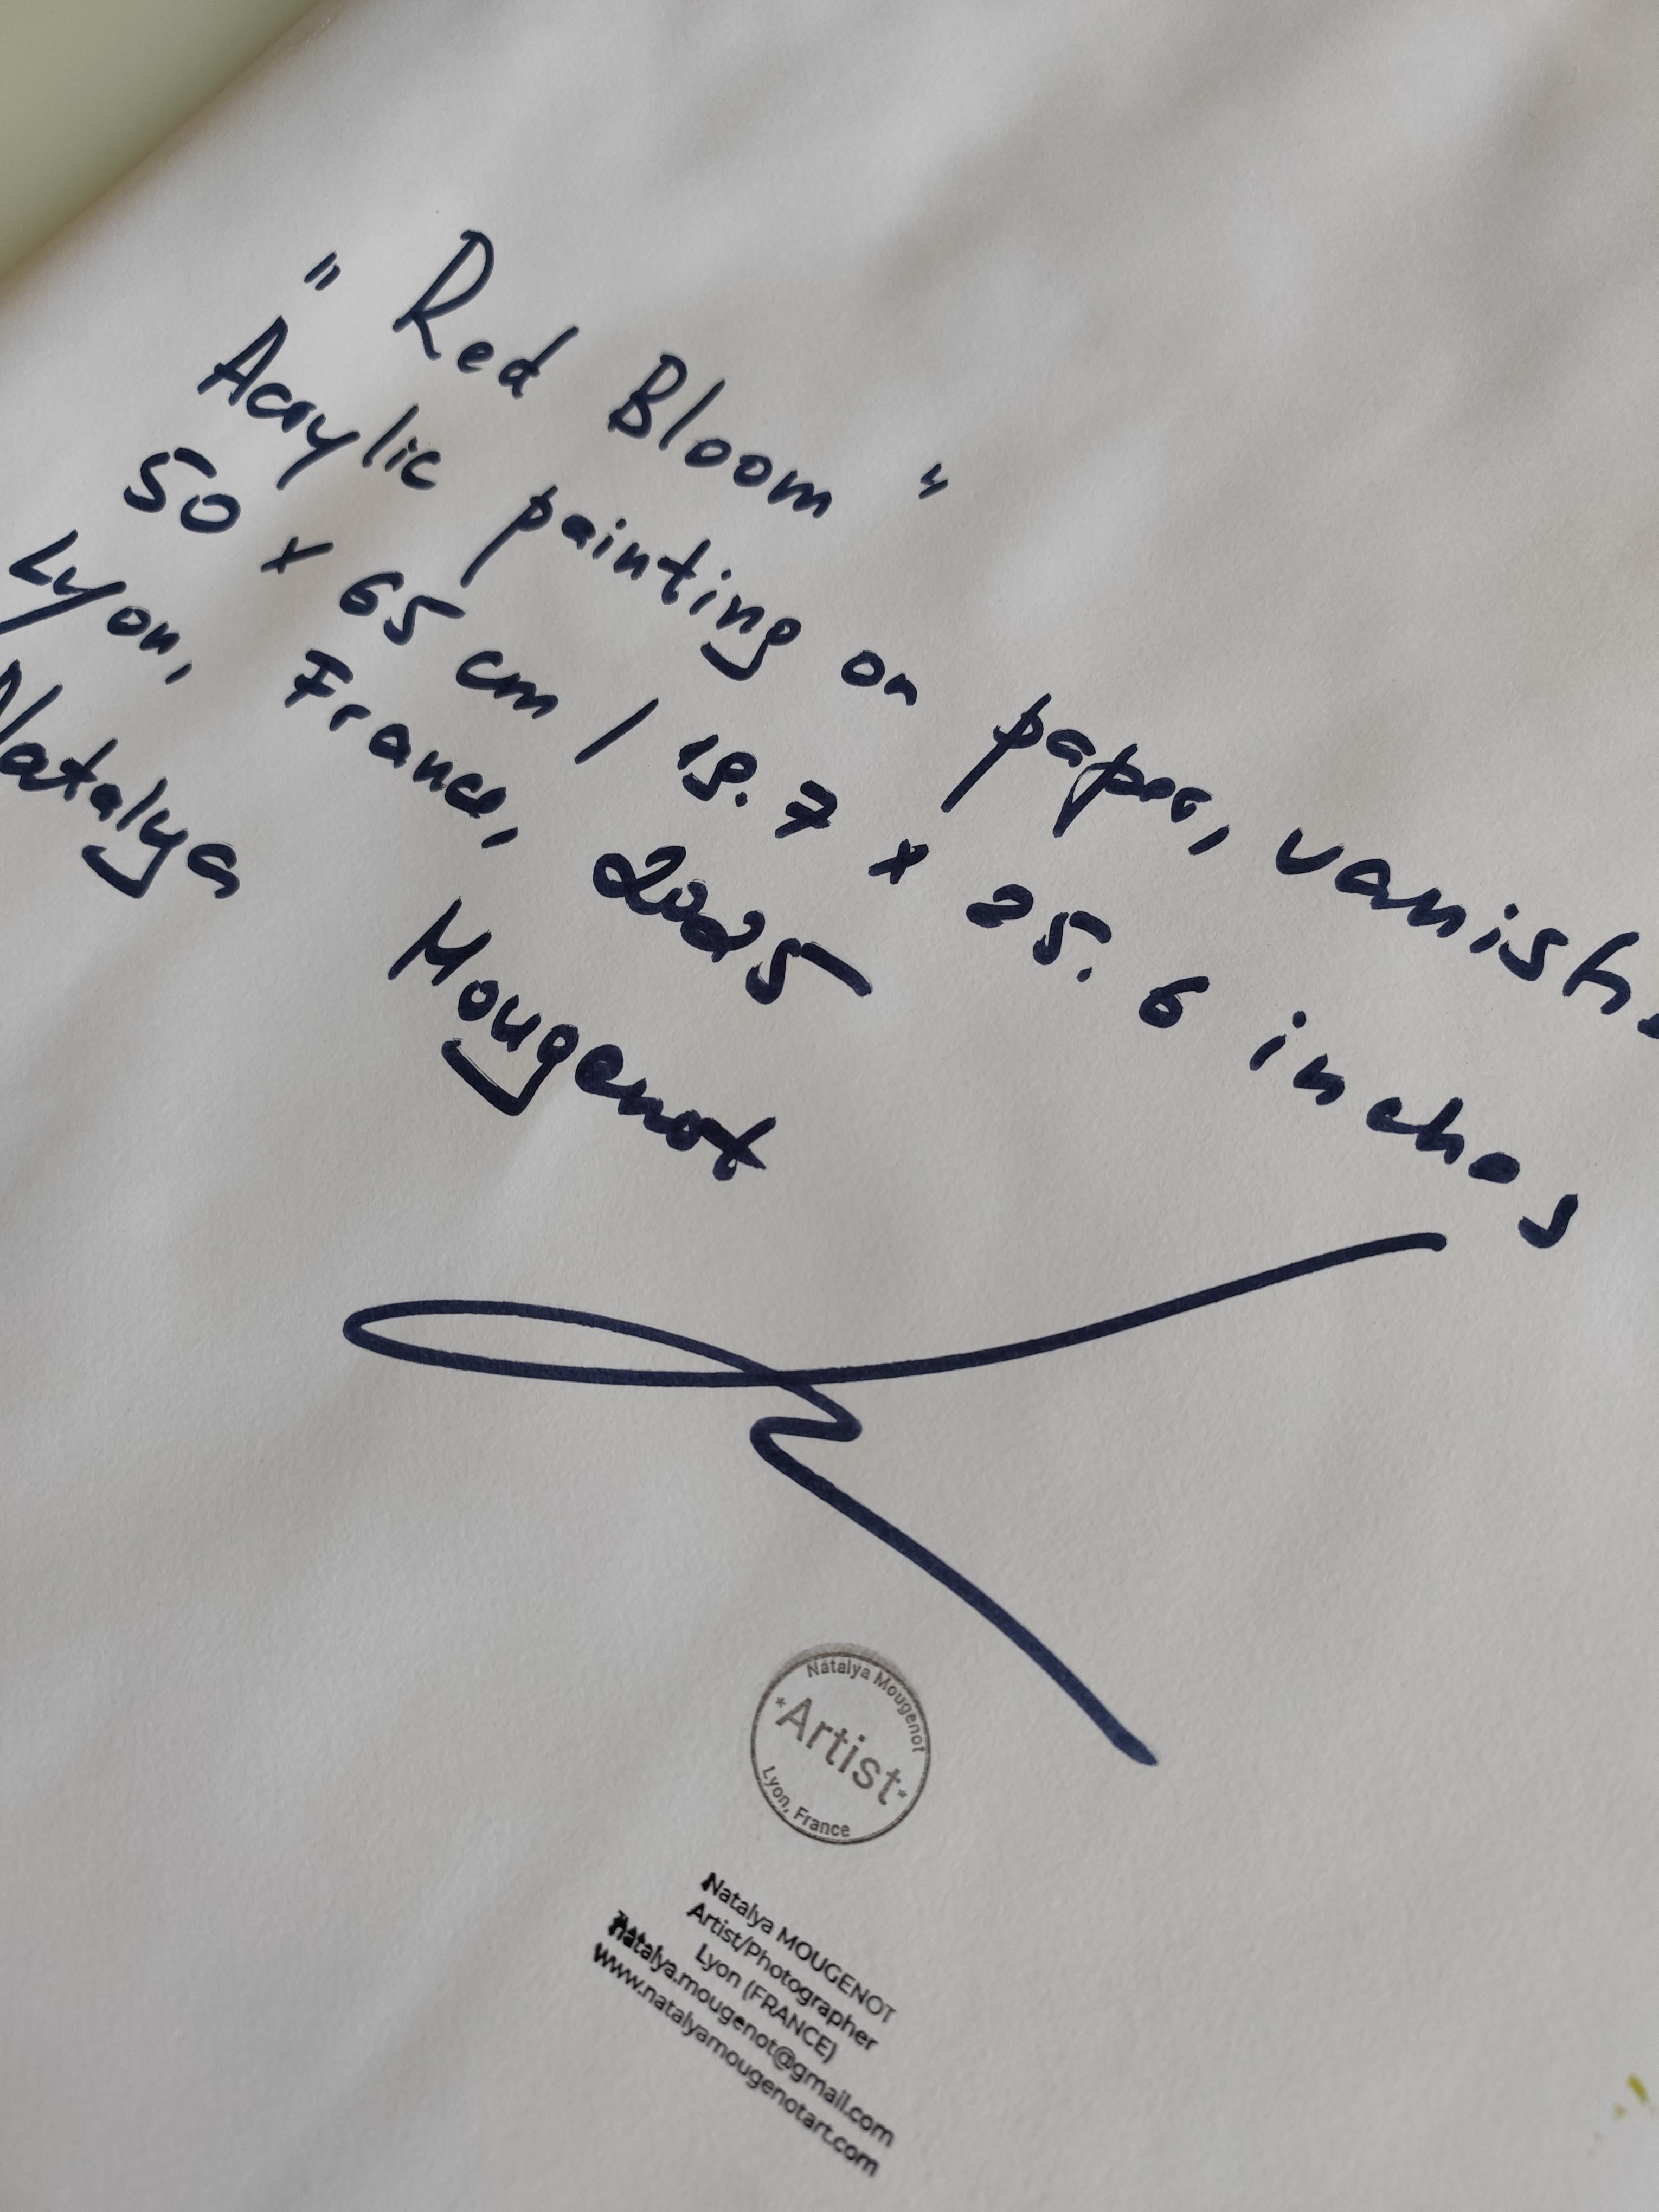 " Red Bloom "
Acrylic painting on paper, vanish
50 x 65 cm / 19.7 x 25.6 inches
Lyon, France, 2025
Natalya Mougenot
Natalya Mougenot
*Artist*
Lyon, France
Natalya MOUGENOT
Artist/Photographer
Lyon (FRANCE)
natalya.mougenot@gmail.com
www.natalyamougenotart.com